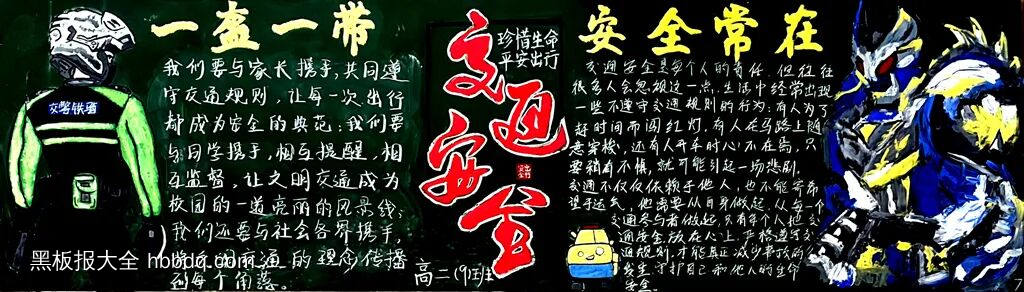 一盔一带
交警铁骑
我们要与家长携手,共同遵
守交通规则,让每一次出行
都成为安全的典范;我们要
与同学携手,相互提醒,相
互监督,让文明交通成为
校园的一道亮丽的风景线;
我们还要与社会各界携手,
的理念传播
到每个角落。
黑板报大全
交通安全
珍惜生命
平安出行
高二(9)班
安全常在
交通安全是每个人的责任.但往往
很多人会忽视这一点.生活中经常出现
一些不遵守交通规则的行为:有人为了
赶时间而闯红灯,有人在马路上随
意穿梭,还有人开车时心不在焉,只
要稍有不慎,就可能引起一场悲剧.
交通不仅仅依赖于他人,也不能寄希
望于运气,他需要从自身做起,从每一个
交通参与者做起,只有每个人把交
通安全放在人上.严格遵守交
通规则,才能真正减少事故的
发生,守护自己和他人的生命
安全。